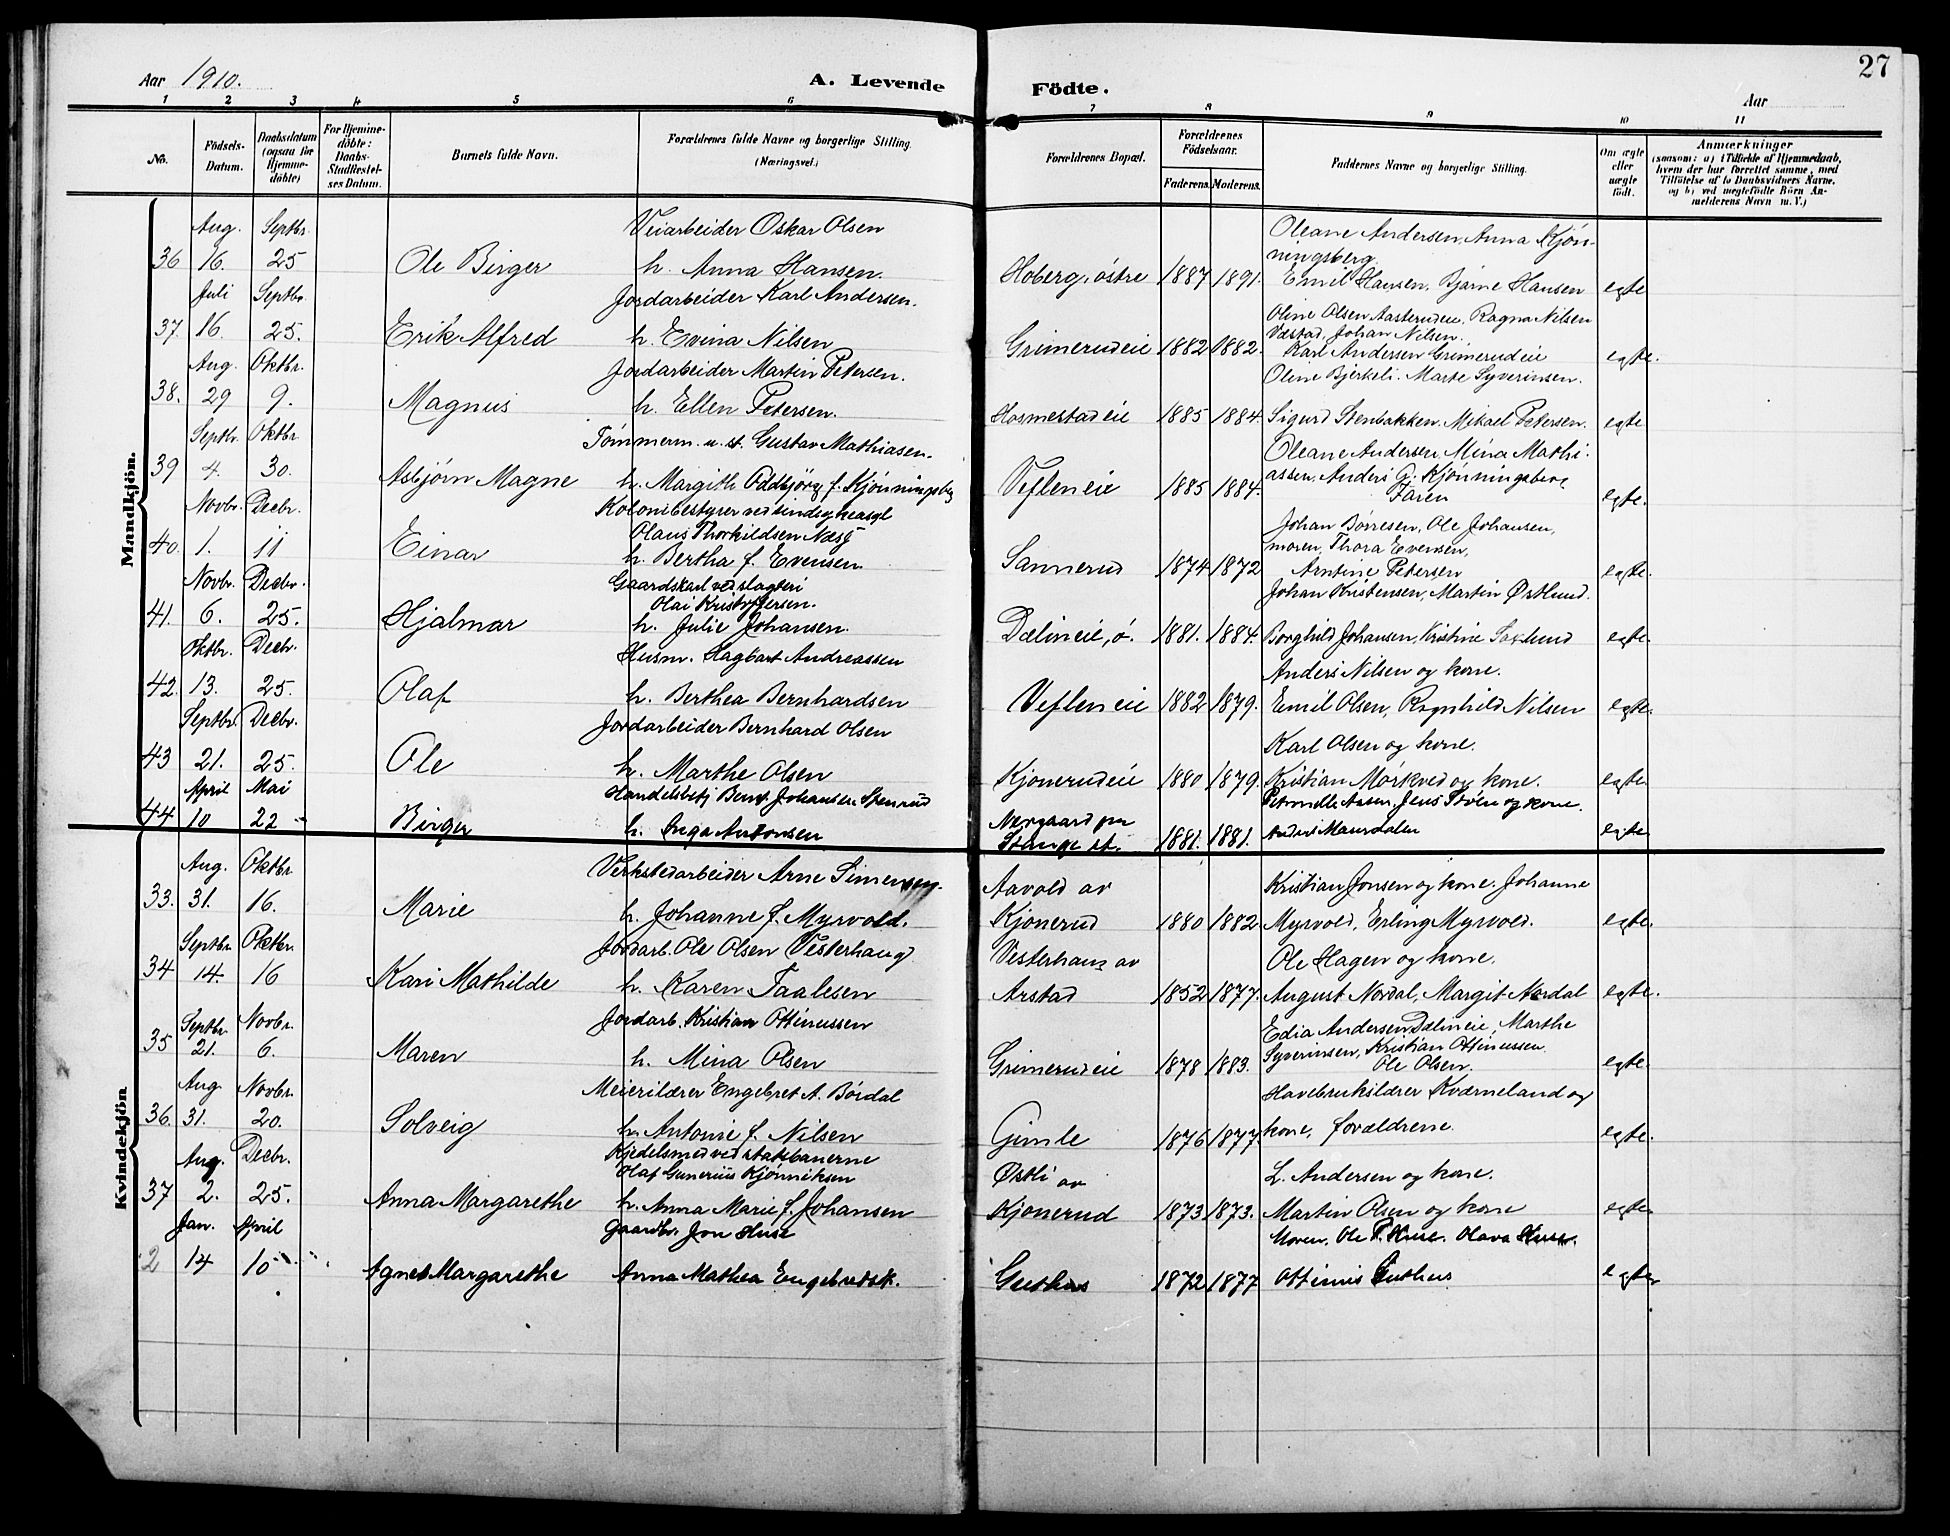 27
Aar 1910.
A. Levende Födte.
Aar
1 2 3 4 5 6 7 8 9 10 11
No.
Födsels-Datum.
Daabsdatum (ogsaa for Hjemme-döbte)
For Hjemme-döbte: Daabs-Stadfæstel-ses Datum.
Barnets fulde Navn.
Forældrenes fulde Navne og borgerlige Stilling. (Næringsvei.)
Forældrenes Bopæl.
Forældrenes Födselsaar.
Faderens. Moderens.
Faddernes Navne og borgerlige Stilling.
Om ægte eller uægte födt.
Anmærkninger
(saasom: a) i Tilfælde af Hjemmedaab,
hvem der har forrettet samme, med
Tilföielse af to Daabsvidners Navne,
og b) ved uægtefödte Börn An-
melderens Navn m. V.)
Mandkjön.
Aug. Septbr. Veiarbeider Oskar Olsen Oleane Andersen, Anna Kjön-
ningsberg.
36 16. 25 Ole Birger h. Anna Hansen. Hoberg, östre 1887 1891. Emil Hansen, Bjarne Hansen egte
Juli Septbr. Jordarbeider Karl Andersen. Oline Olsen Aasterudeie. Ragna Nilsen
Væstad, Johan Nilsen.
37. 16. 25. Erik Alfred h. Evina Nilsen Grimerudeie 1882 1882. Karl Andersen Grimerudeie egte.
Aug. Oktbr. Jordarbeider Martin Petersen. Oline Bjerkeli. Marte Syverinsen.
38. 29 9. Magnus h. Ellen Petersen. Hosmestadeie 1885 1884. Sigurd Stenbakken. Mikael Petersen. egte
Septbr. Oktbr. Tömmerm. u. st. Gustav Mathiasen. Oleane Andersen, Mina Mathi-
39 4. 30. Asbjörn Magne h. Margith Oddbjörg f. Kjönningsberg Vefleneie 1885 1884. assen. Anders G. Kjönningsberg
Faren egte.
Novbr. Decbr. Kolonibestyrer ved sindsygeasyl
Olaus Thorkildsen Næsg Johan Börresen, Ole Johansen,
moren, Thora Evensen,
40. 1. 11 Einar h. Bertha f. Evensen Sannerud 1874 1872 Arntine Petersen egte.
Novbr. Decbr. Gaardskarl ved slagteri
Olai Kristoffersen. Johan Kristensen, Martin Östlund.
41. 6. 25. Hjalmar h. Julie Johansen. Dælineie, ö. 1881. 1884. Borghild Johansen, Kristine egte.
Oktbr. Decbr. Husm. Hagbart Andreassen Anders Nilsen og kone.
42. 13. 25. Olaf h. Berthea Bernhardsen Vefleneie 1882 1879. Emil Olsen, Ragnhild Nilsen egte.
Septbr. Decbr. Jordarbeider Bernhard Olsen Karl Olsen og kone.
43 21. 25. Ole h. Marthe Olsen Kjonerudeie 1880 1879. Kristian Mörkved og kone. egte.
April Mai Handelsbetj Bernt Johansen Stenrud Petronelle Aasen. Jens Stöen og kone.
44 10 22 Birger h. Inga Antonsen Nergaard pr Stange st. 1881. 1881. Anders Maurdalen egte
Kvindekjön
Aug. Oktbr. Verkstedarbeider Arne Simensen. Aavold av Kristian Jonsen og kone. Johanne
33. 31. 16. Marie h. Johanne f. Myrvold. Kjonerud 1880 1882 Myrvold, Erling Myrvold. egte.
Septbr. Oktbr. Jordarb. Ole Olsen Vesterhaug Vesterhaug av Ole Hagen og kone.
34 14. 16 Kari Mathilde h. Karen Taalesen Arstad 1852 1877. August Nordal, Margit Nordal egte.
Septbr. Novbr. Jordarb. Kristian Ottinussen Edia Andersen Dælineie, Marthe
Syverinsen, Kristian Ottinussen.
35 21. 6. Maren h. Mina Olsen Grimerudeie 1878 1883. Ole Olsen. egte.
Aug Novbr. Meierilærer Engebret A. Böidal Havebrukslærer Kværneland og
36. 31. 20. Solveig h. Antonie f. Nilsen Gimle 1876 1877 kone, forældrene. egte.
Aug. Decbr. Kjedelsmed ved statsbanerne
Olaf Gunerius Kjönniksen Östli av L. Andersen og kone.
37 2. 25. Anna Margarethe h. Anna Marie f. Johansen Kjonerud 1873 1873. Martin Olsen og kone egte
Jan. April Gaardbr. Jon Huse Moren, Ole P. Huse. Olava Huse.
2 14 10 Agnes Margarethe Anna Mathea Engebretsk. Guthus 1872 1877 Ottinus Guthus egte